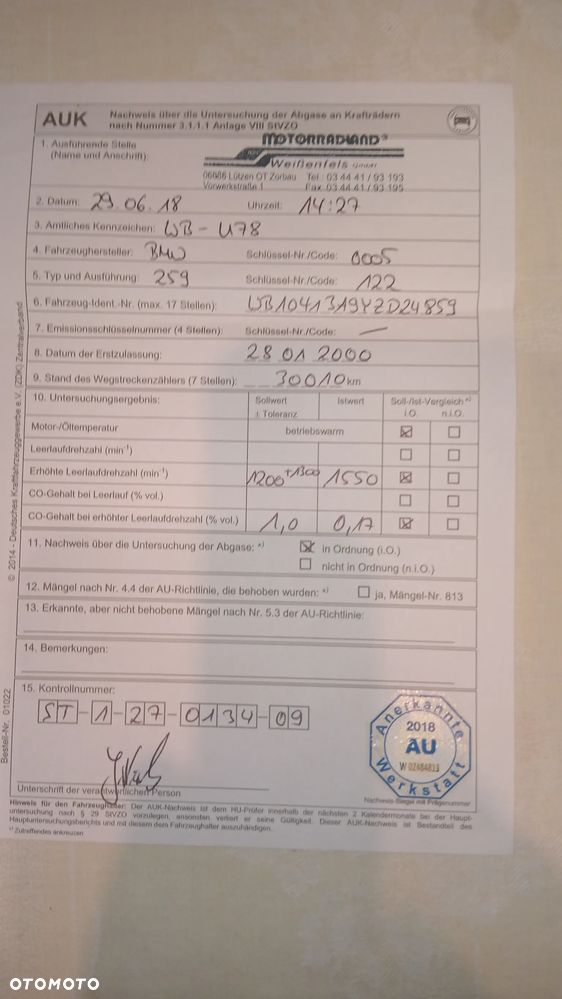 AUK Nachweis über die Untersuchung der Abgase an Krafträdern
nach Nummer 3.1.1.1 Anlage VIII StVZO
1. Ausführende Stelle
(Name und Anschrift):
MOTORRADLAND
Weißenfels GmbH
06686 Lützen OT Zorbau Tel : 03 44 41 / 93 193
Vorwerkstraße 1 Fax 03 44 41 / 93 195
2. Datum: 29.06.18 Uhrzeit: 14:27
3. Amtliches Kennzeichen: WB - U78
4. Fahrzeughersteller: BMW Schlüssel-Nr./Code: 0005
5. Typ und Ausführung: 259 Schlüssel-Nr./Code: 122
6. Fahrzeug-Ident.-Nr. (max. 17 Stellen): WB1041319YZD24859
7. Emissionsschlüsselnummer (4 Stellen): Schlüssel-Nr./Code: —
8. Datum der Erstzulassung: 28 01 2000
9. Stand des Wegstreckenzählers (7 Stellen): _ _ 30010 km
10. Untersuchungsergebnis: Sollwert Istwert Soll-/Ist-Vergleich *)
± Toleranz i.O. n.i.O.
Motor-/Öltemperatur betriebswarm
Leerlaufdrehzahl (min-1)
Erhöhte Leerlaufdrehzahl (min-1) 1200 +1300 1550
CO-Gehalt bei Leerlauf (% vol.)
CO-Gehalt bei erhöhter Leerlaufdrehzahl (% vol.) 1,0 0,17
11. Nachweis über die Untersuchung der Abgase: *) in Ordnung (i.O.)
nicht in Ordnung (n.i.O.)
12. Mängel nach Nr. 4.4 der AU-Richtlinie, die behoben wurden: *) ja, Mängel-Nr. 813
13. Erkannte, aber nicht behobene Mängel nach Nr. 5.3 der AU-Richtlinie:
14. Bemerkungen:
15. Kontrollnummer:
ST-1-27-0134-09
Anerkannte
2018
AU
Werkstatt
Unterschrift der verantwortlichen Person
Nachweis-Siegel mit Prägenummer
Hinweis für den Fahrzeughalter: Der AUK-Nachweis ist dem HU-Prüfer innerhalb der nächsten 2 Kalendermonate bei der Haupt-
untersuchung nach § 29 StVZO vorzulegen, ansonsten verliert er seine Gültigkeit. Dieser AUK-Nachweis ist Bestandteil des
Hauptuntersuchungsberichts und mit diesem dem Fahrzeughalter auszuhändigen.
*) Zutreffendes ankreuzen
© 2014 - Deutsches Kraftfahrzeuggewerbe e.V. (ZDK) Zentralverband
Bestell-Nr. 01022
OTOMOTO